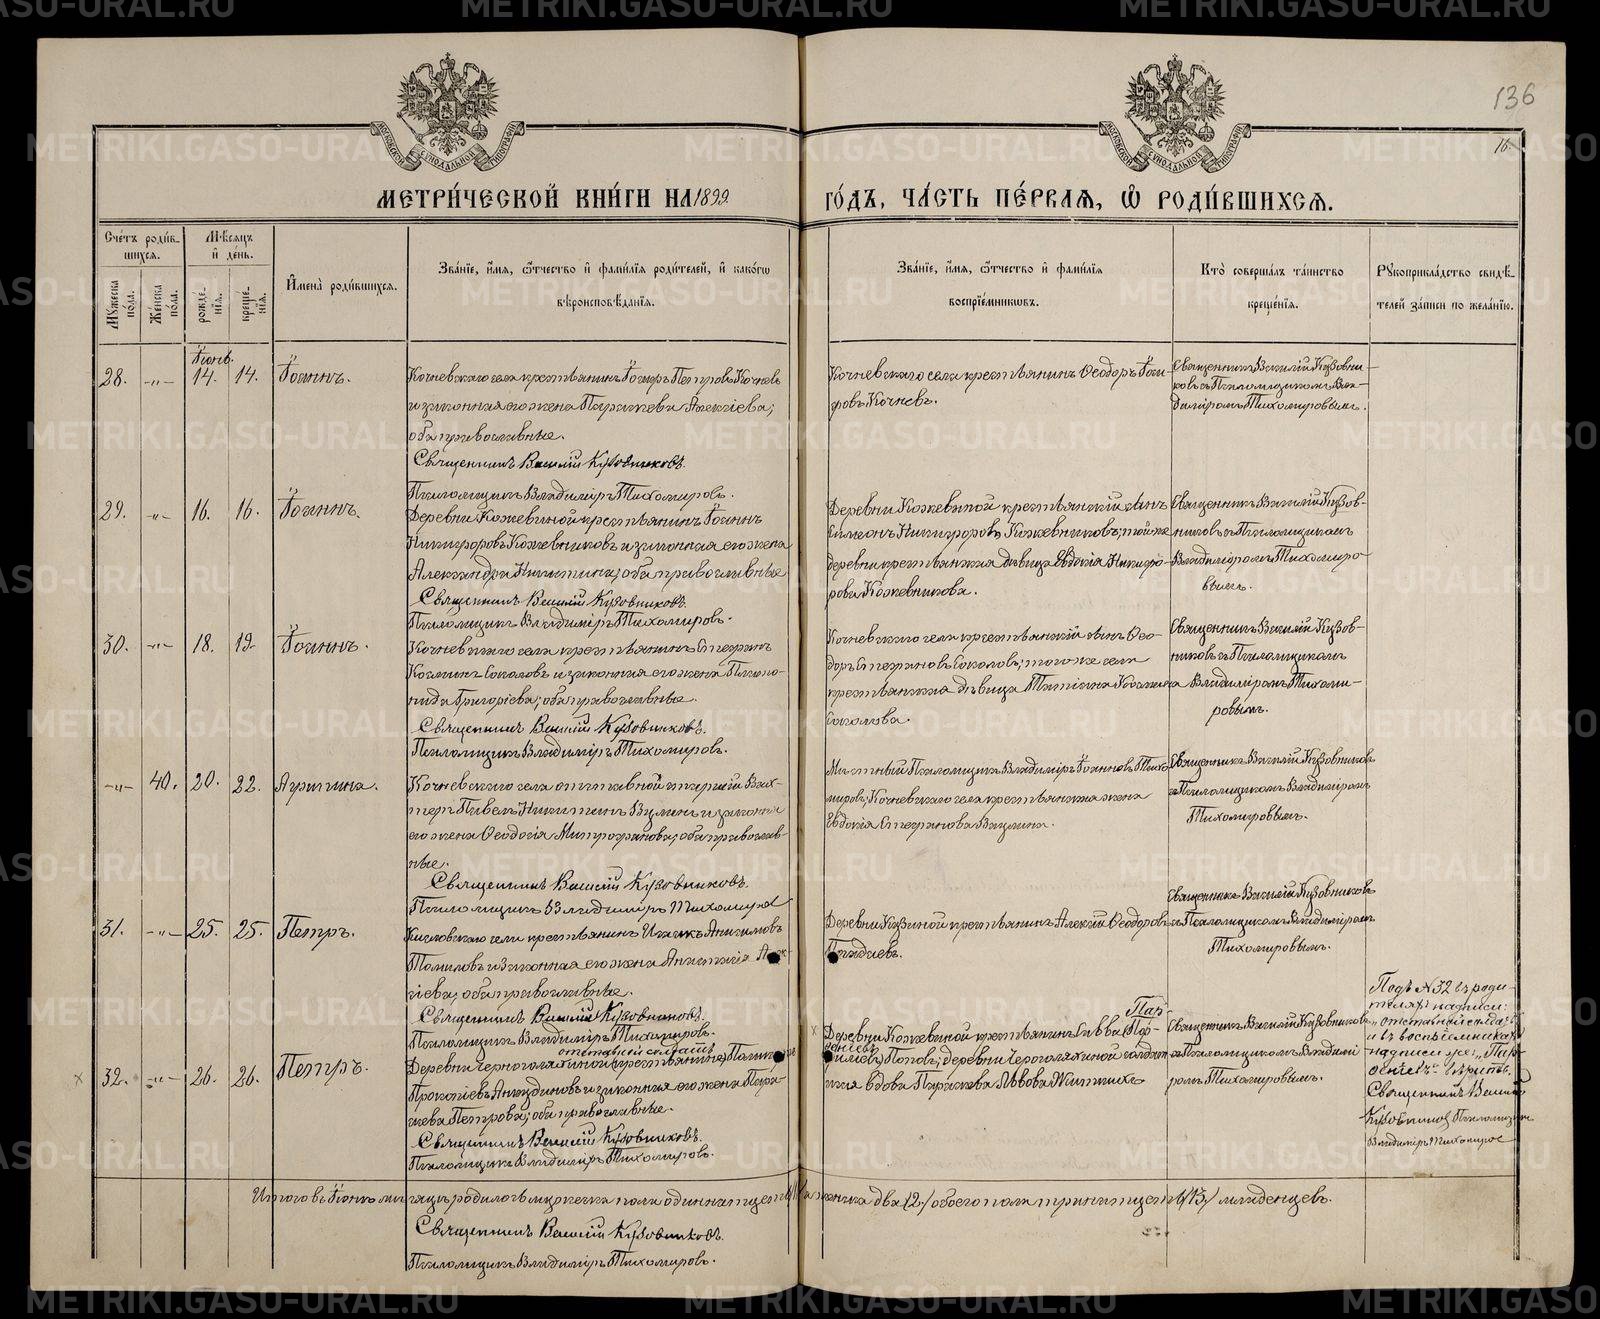 METRIKI.GASO-URAL.RU
136
16.
МОСКОВСКОЙ СУНОДАЛЬНОЙ ТИПОГРАФІИ
МОСКОВСКОЙ СУНОДАЛЬНОЙ ТИПОГРАФІИ
МЕТРИ́ЧЕСКОЙ КНИ́ГИ НА 1899 ГО́ДЪ, ЧА́СТЬ ПЕ́РВАѦ, Ѡ҆ РОДИ́ВШИХСѦ.
Сче́тъ роди́в-
шихся.
Мужеска пола.
Же́нска по́ла.
Мѣ́сяцъ
и҆ де́нь.
рожде́нїя.
креще́нїя.
И҆мена̀ роди́вшихся.
Зва́нїе, и҆́мя, ѻ҆́тчество и҆ фами́лїя роди́телей, и҆ како́гѡ
вѣроисповѣ́данїя.
Зва́нїе, и҆́мя, ѻ҆́тчество и҆ фами́лїя
воспрїе́мникѡвъ.
Кто̀ соверша́лъ та́инство
креще́нїя.
Рукоприкла́дство свидѣ́-
телей за́писи по жела́нїю.
Іюнь.
28. -"- 14. 14. Іоаннъ.
Кочневскаго села крестьянинъ Іосифъ Петровъ Кочневъ
и законная его жена Параскева Алексіева;
оба православные.
Священникъ Василій Кузовниковъ.
Псаломщикъ Владиміръ Тихомировъ.
Кочневскаго села крестьянинъ Ѳеодоръ Іоси-
фовъ Кочневъ.
Священникъ Василій Кузовни-
ковъ съ Псаломщикомъ Вла-
диміромъ Тихомировымъ.
29. -"- 16. 16. Іоаннъ.
Деревни Кожевиной крестьянинъ Іоаннъ
Никифоровъ Кожевниковъ и законная его жена
Александра Никитина; оба православные
Священникъ Василій Кузовниковъ.
Псаломщикъ Владиміръ Тихомировъ.
Деревни Кожевиной крестьянскій сынъ
Симеонъ Никифоровъ Кожевниковъ; той же
деревни крестьянская дѣвица Евдокія Никифо-
рова Кожевникова.
Священникъ Василій Кузов-
никовъ съ Псаломщикомъ
Владиміромъ Тихомиро-
вымъ.
30. -"- 18. 19. Іоаннъ.
Кочневскаго села крестьянинъ Стефанъ
Козминъ Соколовъ и законная его жена
Григоріева; оба православные.
Священникъ Василій Кузовниковъ.
Псаломщикъ Владиміръ Тихомировъ.
Кочневскаго села крестьянскій сынъ Ѳео-
доръ Стефановъ Соколовъ; того же села
крестьянская дѣвица Татіана Козмина
Соколова.
Священникъ Василій Кузов-
никовъ съ Псаломщикомъ
Владиміромъ Тихоми-
ровымъ.
-"- 40. 20. 22. Агрипина.
Кочневскаго села отставной старшій Вах-
теръ Павелъ Никитинъ и законная
его жена Ѳеодосія Митрофанова; оба православ-
ные.
Священникъ Василій Кузовниковъ.
Псаломщикъ Владиміръ Тихомировъ
Мѣстный Псаломщикъ Владиміръ Іоанновъ Тихо-
мировъ; Кочневскаго села крестьянская жена
Евдокія Стефанова
Священникъ Василій Кузовниковъ
съ Псаломщикомъ Владиміромъ
Тихомировымъ.
31. -"- 25. 25. Петръ.
села крестьянинъ
Томиловъ и законная его жена Анастасія Алек-
сіева; оба православные.
Священникъ Василій Кузовниковъ.
Псаломщикъ Владиміръ Тихомировъ.
Деревни крестьянинъ Алексій Ѳеодоровъ
Священникъ Василій Кузовниковъ
съ Псаломщикомъ Владиміромъ
Тихомировымъ.
× 32. -"- 26. 26. Петръ.
отставной солдатъ
Деревни Черноголяхиной (крестьянинъ)
Прокопіевъ и законная его жена Пара-
скева Петрова; оба православные.
Священникъ Василій Кузовниковъ.
Псаломщикъ Владиміръ Тихомировъ.
Деревни Кожевиной крестьянинъ Савва
Поповъ; деревни Черноголяхиной солдат-
ская вдова Параскева Львова
Священникъ Василій Кузовниковъ
съ Псаломщикомъ Владимі-
ромъ Тихомировымъ.
Подъ №32 въ роди-
теляхъ надписи:
"отставной солдатъ"
и въ воспріемникахъ
надписи же: "Пар-
ѳеніевъ" вѣрить.
Священникъ Василій
Кузовниковъ Псаломщикъ
Владиміръ Тихомировъ
Итого въ Іюнѣ мѣсяцѣ родилось мужеска пола одиннатцать /11/ женска два /2/ обоего пола тринатцать /13/ младенцевъ.
Священникъ Василій Кузовниковъ.
Псаломщикъ Владиміръ Тихомировъ.